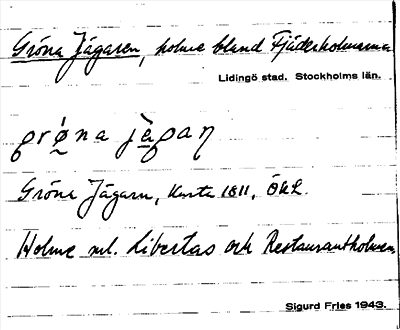 Gröna Jägaren, holme bland Fjäderholmarna
Lidingö stad. Stockholms län.
grø̀na jɛ̀gaɳ
Gröne Jägarn, Karta 1811, ÖkL
Holme ml. Libertas och Restaurantholmen
Sigurd Fries 1943.